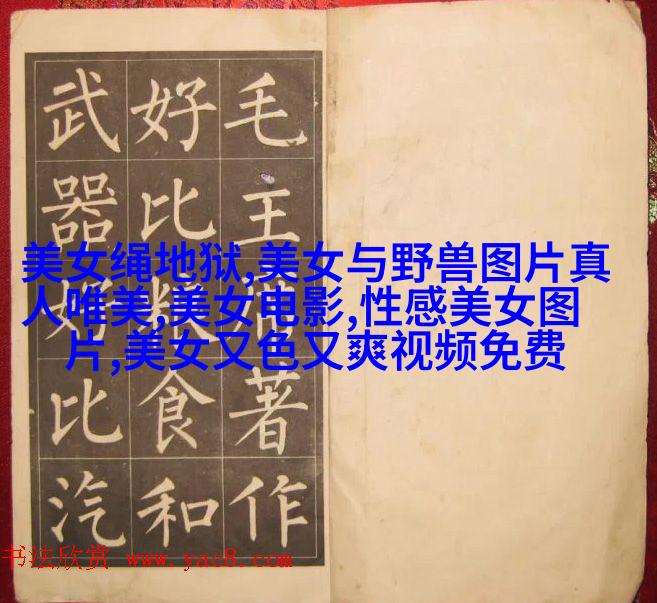 毛主席著作
好比粮食和
武器好比汽
美女绳地狱,美女与野兽图片真
人唯美,美女电影,性感美女图
片,美女又色又爽视频免费
书法欣赏 www.yac8.com